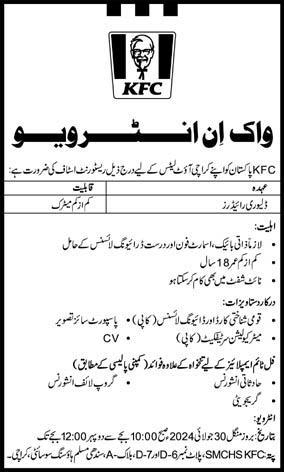 KFC
واک اِن انٹرویو
KFC پاکستان کو اپنے کراچی آؤٹ لیٹس کے لیے درج ذیل ریسٹورنٹ اسٹاف کی ضرورت ہے:
عہدہ قابلیت
ڈلیوری رائیڈرز کم از کم میٹرک
اہلیت:
• لازماً ذاتی بائیک، اسمارٹ فون اور درست ڈرائیونگ لائسنس کے حامل
• کم از کم عمر 18 سال
• نائٹ شفٹ میں بھی کام کر سکتا ہو
درکار دستاویزات:
• قومی شناختی کارڈ اور ڈرائیونگ لائسنس (کاپی) • پاسپورٹ سائز تصویر
• میٹرکولیشن سرٹیفکیٹ (کاپی) • CV
فل ٹائم ایمپلائیز کے لیے تنخواہ کے علاوہ فوائد (کمپنی پالیسی کے مطابق)
• حادثاتی انشورنس • گروپ لائف انشورنس
• گریجویٹی
انٹرویو:
تاریخ: بروز منگل 30 جولائی 2024، صبح 10:00 بجے سے دوپہر 12:00 بجے تک
پتہ: SMCHS KFC، پلاٹ نمبر D-6 اور D-7، بلاک-A، سندھی مسلم ہاؤسنگ سوسائٹی، کراچی۔